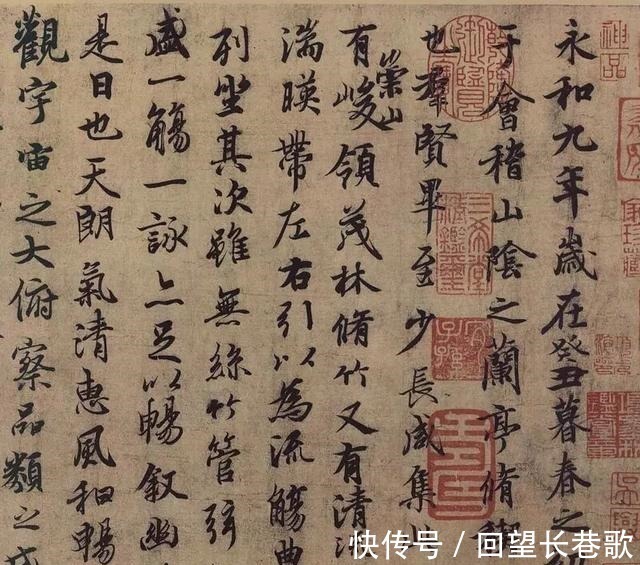 永和九年歲在癸丑暮春之初
于會稽山陰之蘭亭脩稧
也羣賢畢至少長咸集此
有崇山峻領茂林脩竹又有清流
湍暎帶左右引以為流觴曲
列坐其次雖無絲竹管弦
盛一觴一詠亦足以暢敘幽
是日也天朗氣清惠風和暢
觀宇宙之大俯察品類之盛
神品
三希堂精鑑璽
宜子孫
快传号 / 回望长巷歌